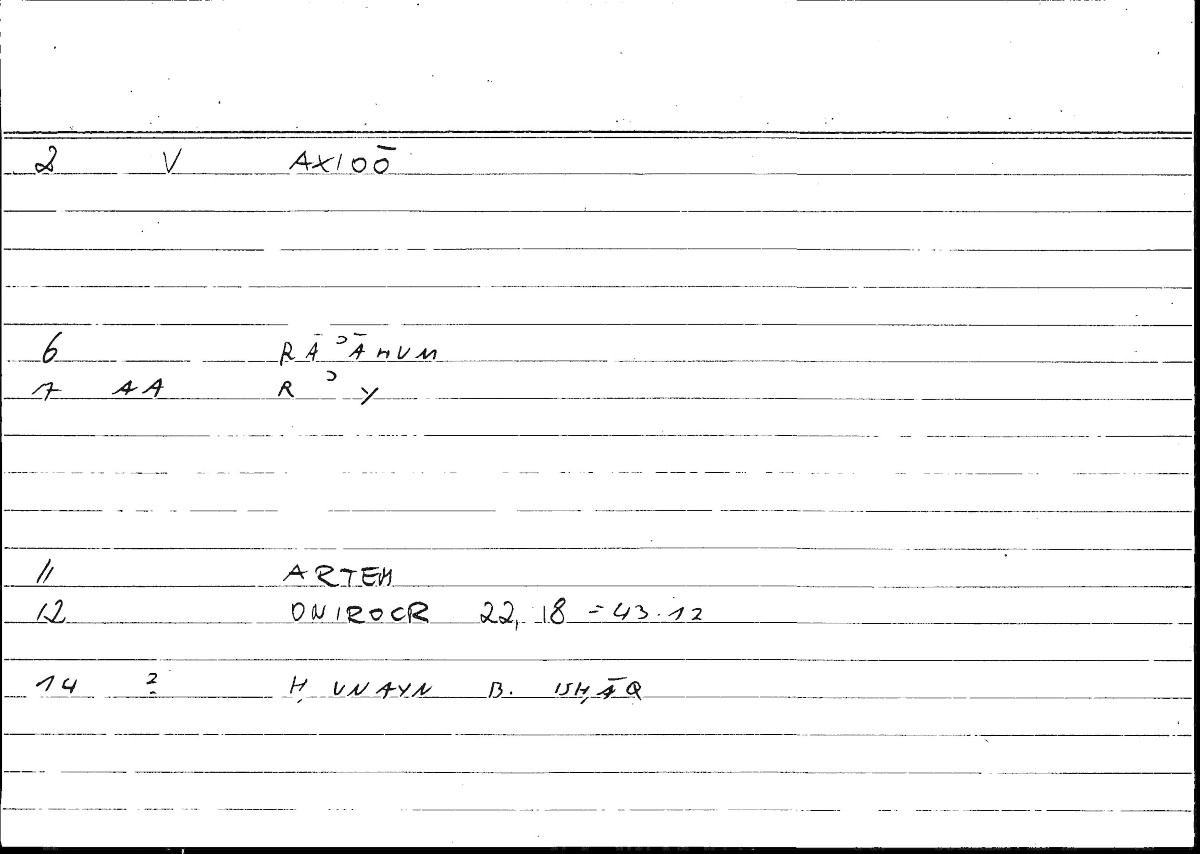 2 V AXIOŌ
6 RĀʾĀHUM
7 AA R ʾ Y
11 ARTEM
12 ONIROCR 22, 18 = 43.12
14 2 ḤUNAYN B. ISḤĀQ